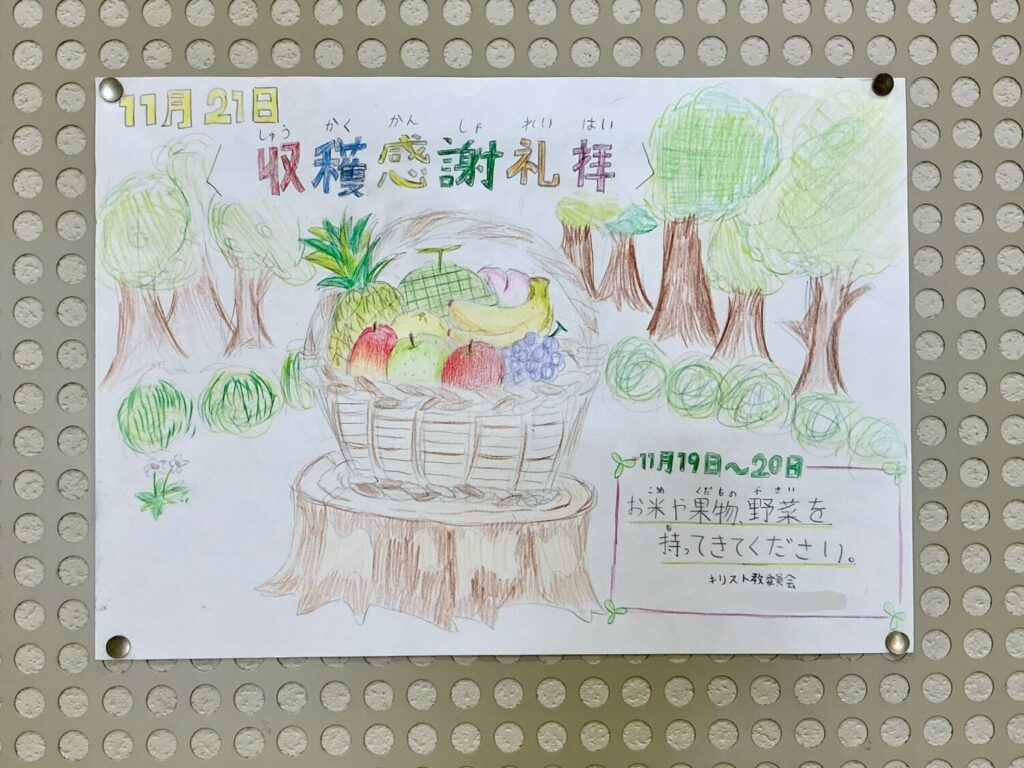 11月21日
しゅう かく かん しゃ れい はい
収穫感謝礼拝
11月19日～20日
こめ くだもの やさい
お米や果物、野菜を
も
持ってきてください。
キリスト教委員会